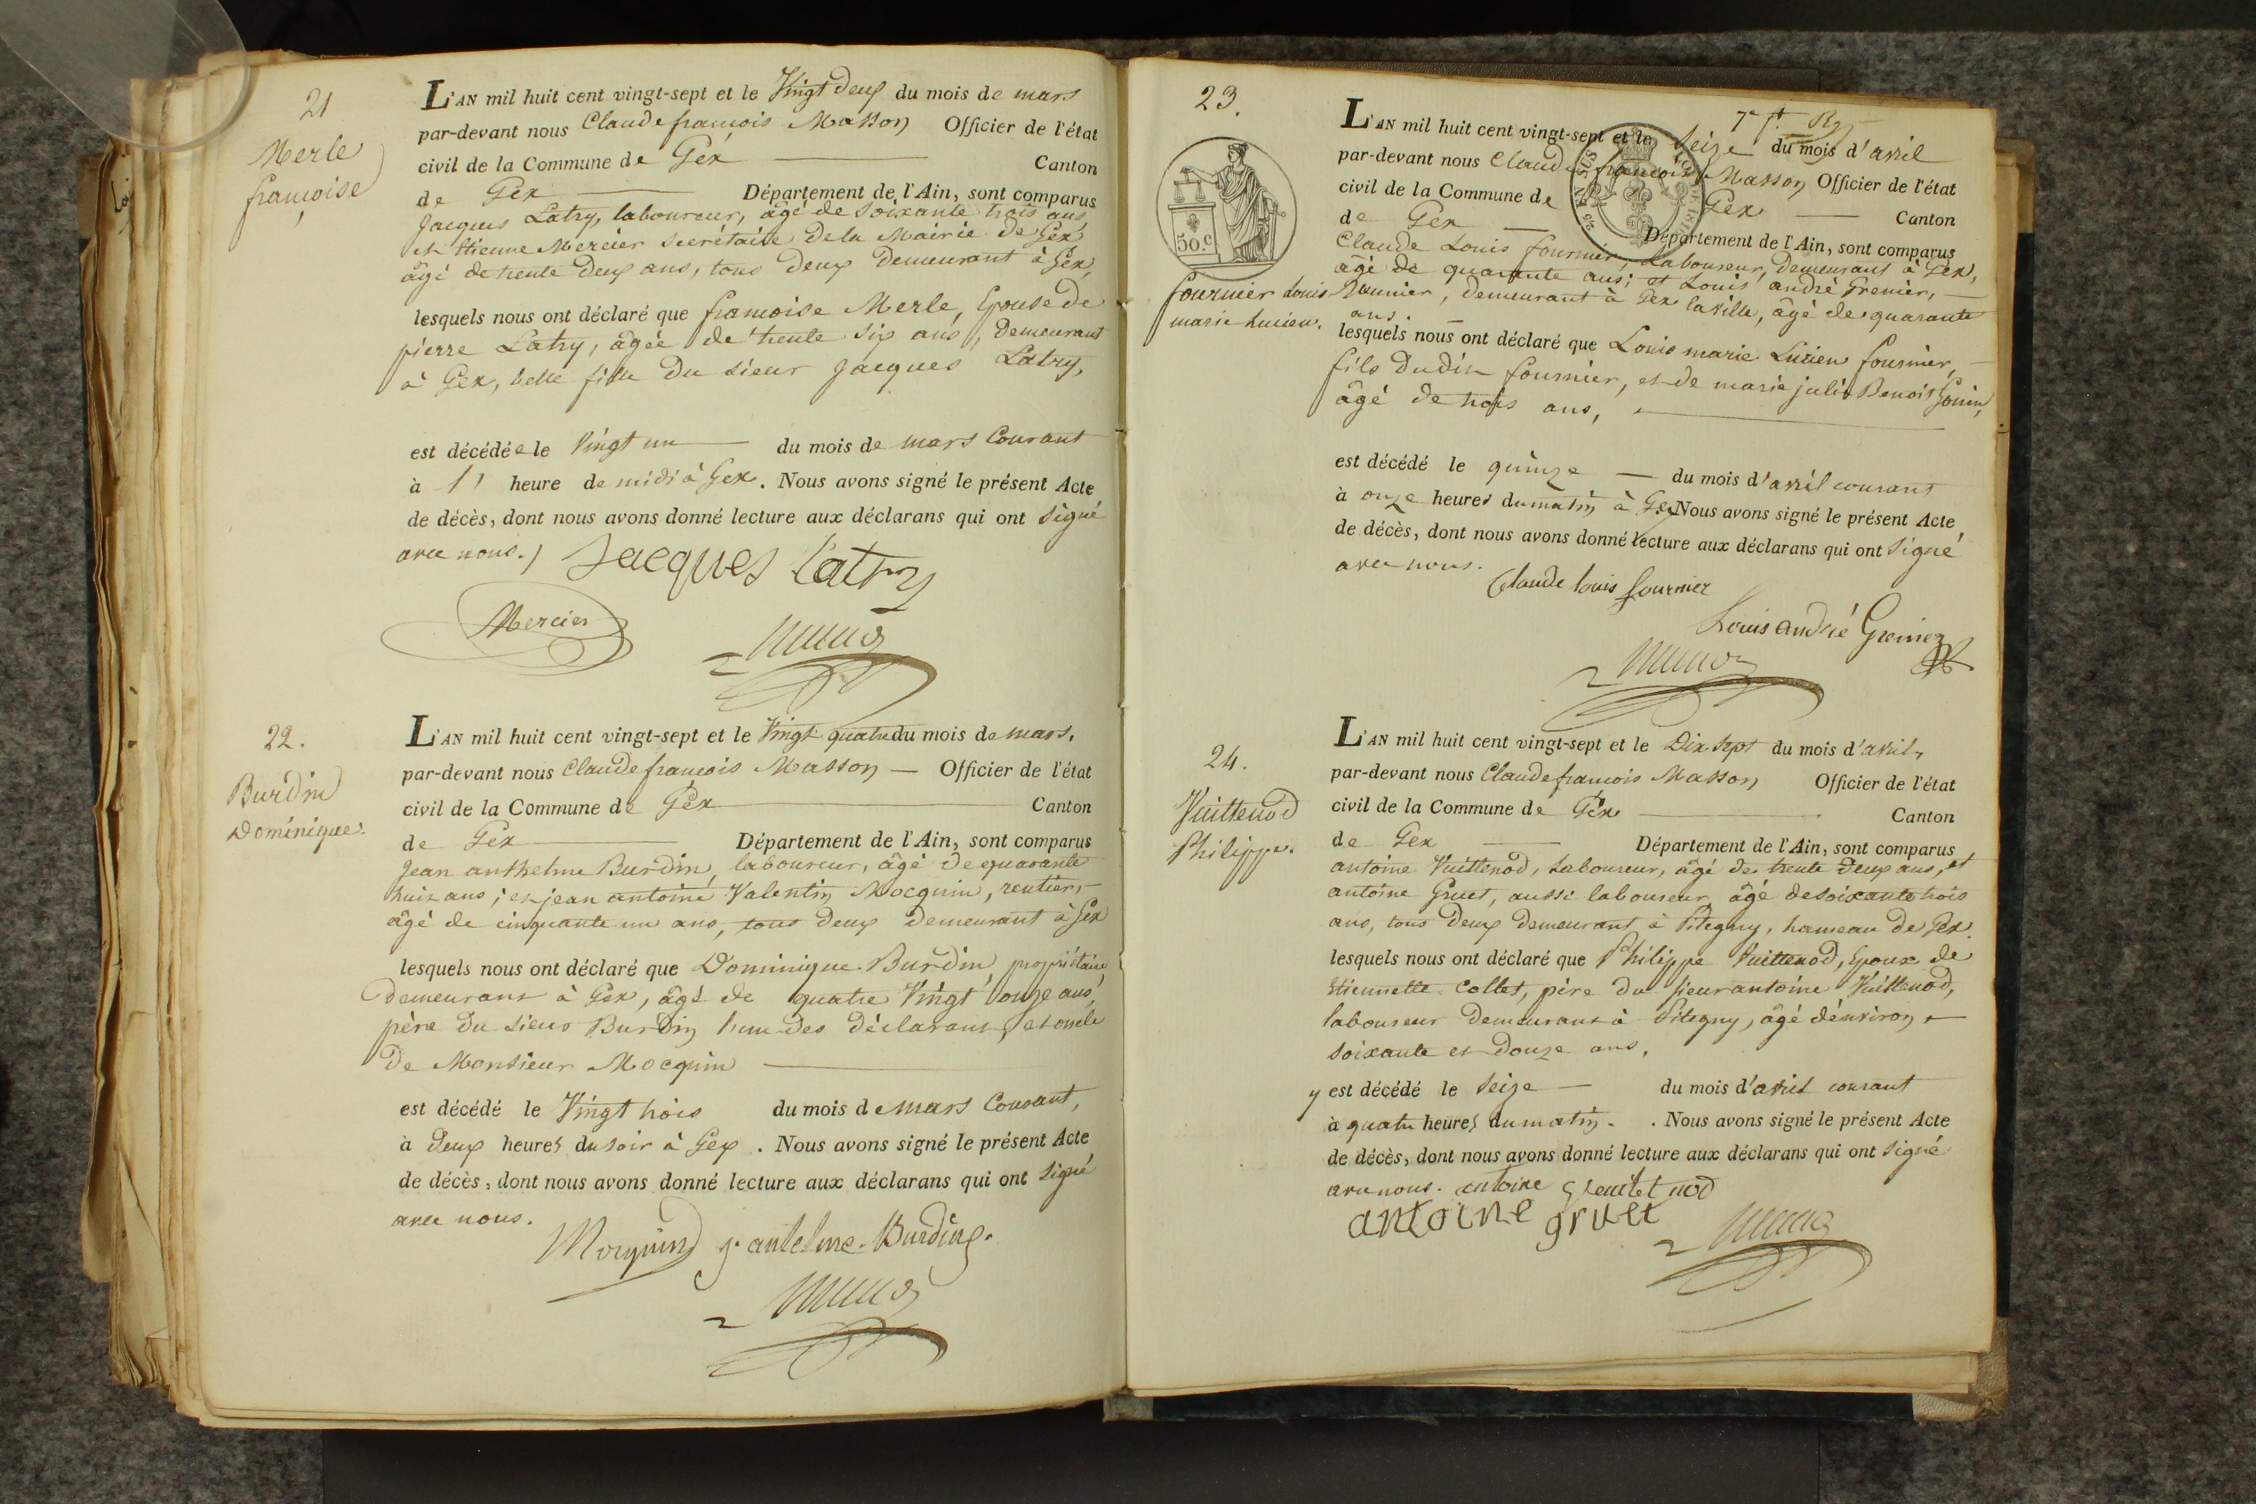 21
Merle
françoise
L'AN mil huit cent vingt-sept et le Vingt deux du mois de mars
par-devant nous Claude françois Masson Officier de l'état
civil de la Commune de Gex Canton
de Gex Département de l'Ain, sont comparus
Jacques Latry, laboureur, âgé de soixante trois ans,
et Etienne Mercier secrétaire de la Mairie de Gex
âgé de trente deux ans, tous deux demeurant à Gex,
lesquels nous ont déclaré que francoise Merle, Epouse de
pierre Latry, âgée de trente six ans, demeurant
à Gex, belle fille du sieur Jacques Latry,
est décédée le Vingt un du mois de mars Courant
à 1 heure de midi à Gex. Nous avons signé le présent Acte
de décès, dont nous avons donné lecture aux déclarans qui ont signé
avec nous. Jacques Latry
Mercier
22.
Burdin
Dominique.
L'AN mil huit cent vingt-sept et le Vingt quatre du mois de mars,
par-devant nous Claude francois Masson Officier de l'état
civil de la Commune de Gex Canton
de Gex Département de l'Ain, sont comparus
Jean anthelme Burdin, laboureur, âgé de quarante
huit ans; et jean antoine Valentin Mocquin, rentier,
âgé de cinquante un ans, tous deux demeurant à Gex
lesquels nous ont déclaré que Dominique Burdin, propriétaire,
demeurant à Gex, âgé de quatre Vingt onze ans,
père du sieur Burdin l'un des déclarant, et oncle
de Monsieur Mocquin
est décédé le Vingt trois du mois de mars Courant,
à deux heures du soir à Gex. Nous avons signé le présent Acte
de décès, dont nous avons donné lecture aux déclarans qui ont signé
avec nous.
Mocquin j. antelme Burding.
23.
50.c
fournier Louis
marie Lucien.
L'AN mil huit cent vingt-sept et le Seize du mois d'avril
par-devant nous Claude francois Masson Officier de l'état
civil de la Commune de Gex Canton
de Gex Département de l'Ain, sont comparus
Claude Louis fournier, Laboureur, demeurant à Gex,
âgé de quarante ans; et Louis andré Grenier,
demeurant à Gex la ville, âgé de quarante
ans.
lesquels nous ont déclaré que Louis marie Lucien fournier,
fils dudit fournier, et de marie julie Benoit Gonin,
âgé de trois ans,
est décédé le quinze du mois d'avril courant
à onze heures du matin à Gex Nous avons signé le présent Acte
de décès, dont nous avons donné lecture aux déclarans qui ont signé
avec nous.
Claude louis fournier
Louis andré Grenier
24.
Vuittenod
Philippe.
L'AN mil huit cent vingt-sept et le Dix sept du mois d'avril,
par-devant nous Claude francois Masson Officier de l'état
civil de la Commune de Gex Canton
de Gex Département de l'Ain, sont comparus
antoine Vuittenod, Laboureur, âgé de trente deux ans, et
antoine Gruet, aussi laboureur âgé de soixante trois
ans, tous deux demeurant à Pitegny, hameau de Gex.
lesquels nous ont déclaré que Philippe Vuittenod, Epoux de
Etiennette Collet, père du sieur antoine Vuittenod,
laboureur demeurant à Pitegny, âgé d'environ
soixante et douze ans,
y est décédé le Seize du mois d'avril courant
à quatre heures du matin. . Nous avons signé le présent Acte
de décès, dont nous avons donné lecture aux déclarans qui ont signé
avec nous. antoine
antoine gruet